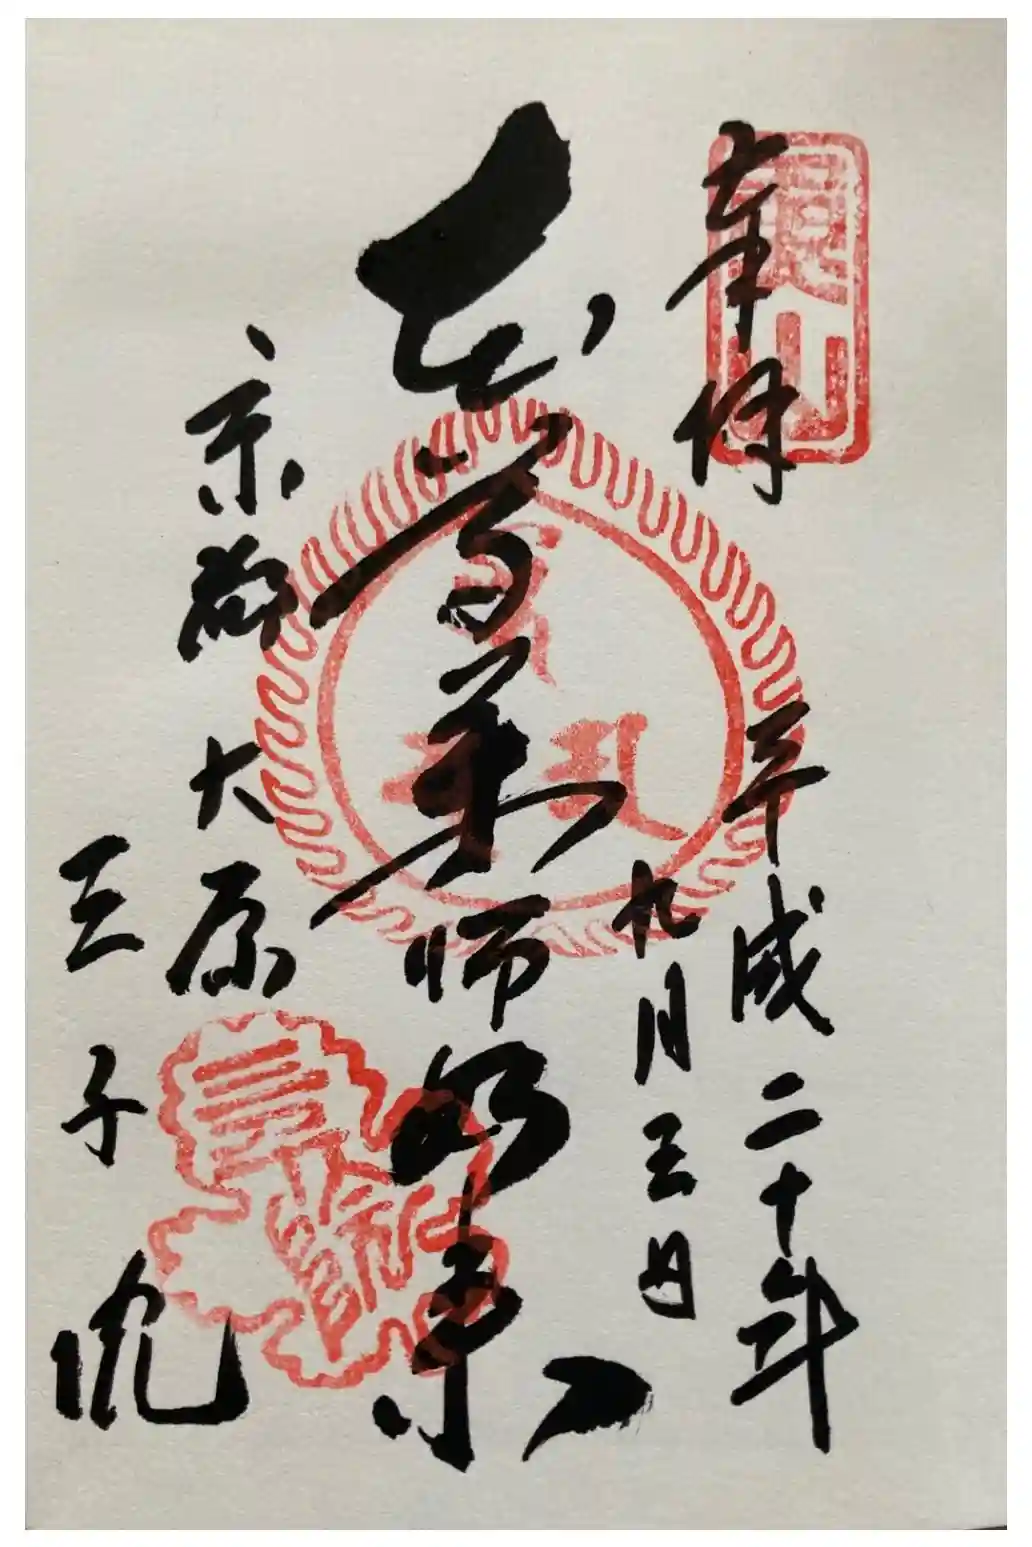 魚山
奉拝
平成二十年
九月三日
本尊薬師如来
京都大原
三千院